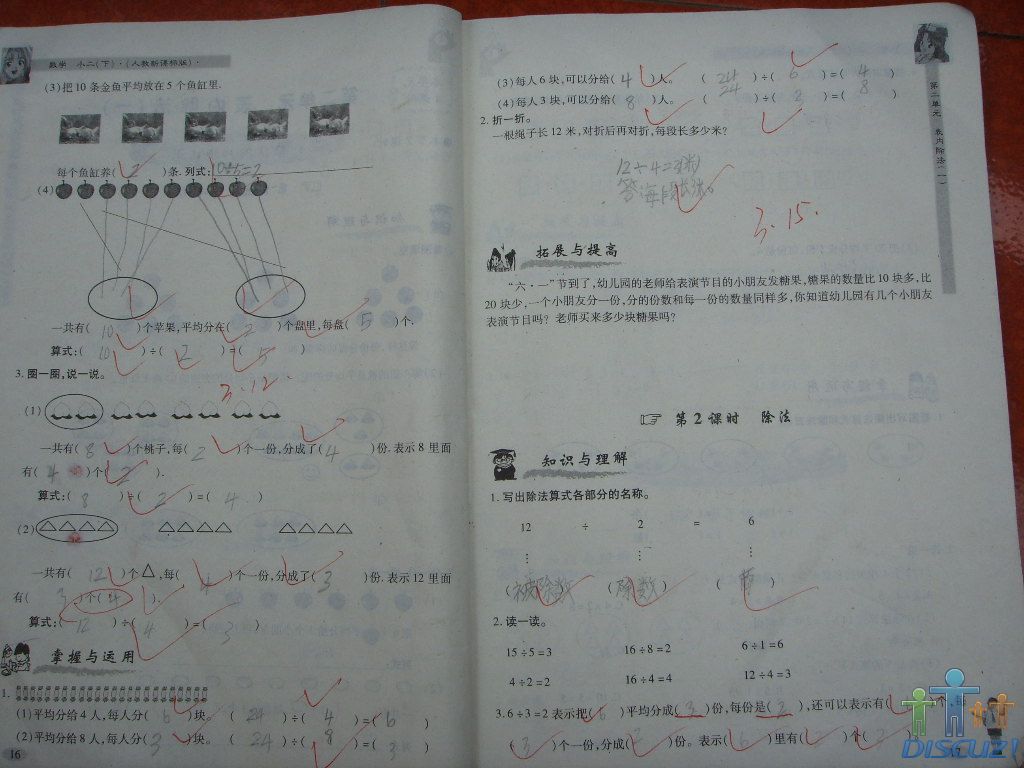 数学 小二(下)·(人教新课标版)·
(3)把10条金鱼平均放在5个鱼缸里.
每个鱼缸养( 2 )条.列式:10÷5=2
(4)
一共有( 10 )个苹果,平均分在( 2 )个盘里,每盘( 5 )个.
算式:( 10 )÷( 2 )=( 5 )
3.12.
3.圈一圈,说一说。
(1)
一共有( 8 )个桃子,每( 2 )个一份,分成了( 4 )份.表示8里面
有( 4 )个( 2 ).
算式:( 8 )÷( 2 )=( 4 )
(2)
一共有( 12 )个△,每( 4 )个一份,分成了( 3 )份.表示12里面
有( 3 )个( 4 ).
算式:( 12 )÷( 4 )=( 3 )
掌握与运用
1.
(1)平均分给4人,每人分( 6 )块。( 24 )÷( 4 )=( 6 )
(2)平均分给8人,每人分( 3 )块。( 24 )÷( 8 )=( 3 )
16
第二单元 表内除法(一)
(3)每人6块,可以分给( 4 )人。( 24 )÷( 6 )=( 4 )
(4)每人3块,可以分给( 8 )人。( 24 )÷( 3 )=( 8 )
2.折一折。
一根绳子长12米,对折后再对折,每段长多少米?
12÷4=3(米)
答:每段长3米。
3.15.
拓展与提高
“六·一”节到了,幼儿园的老师给表演节目的小朋友发糖果,糖果的数量比10块多,比
20块少,一个小朋友分一份,分的份数和每一份的数量同样多,你知道幼儿园有几个小朋友
表演节目吗?老师买来多少块糖果吗?
第2课时 除法
知识与理解
1.写出除法算式各部分的名称。
12 ÷ 2 = 6
(被除数) (除数) (商)
2.读一读。
15÷5=3 16÷8=2 6÷1=6
4÷2=2 16÷4=4 12÷4=3
3.6÷3=2表示把( 6 )平均分成( 3 )份,每份是( 2 ),还可以表示有( )个,每
( 3 )个一份,分成( 2 )份。表示( 6 )里有( 2 )个( 3 )
DISCUZ!